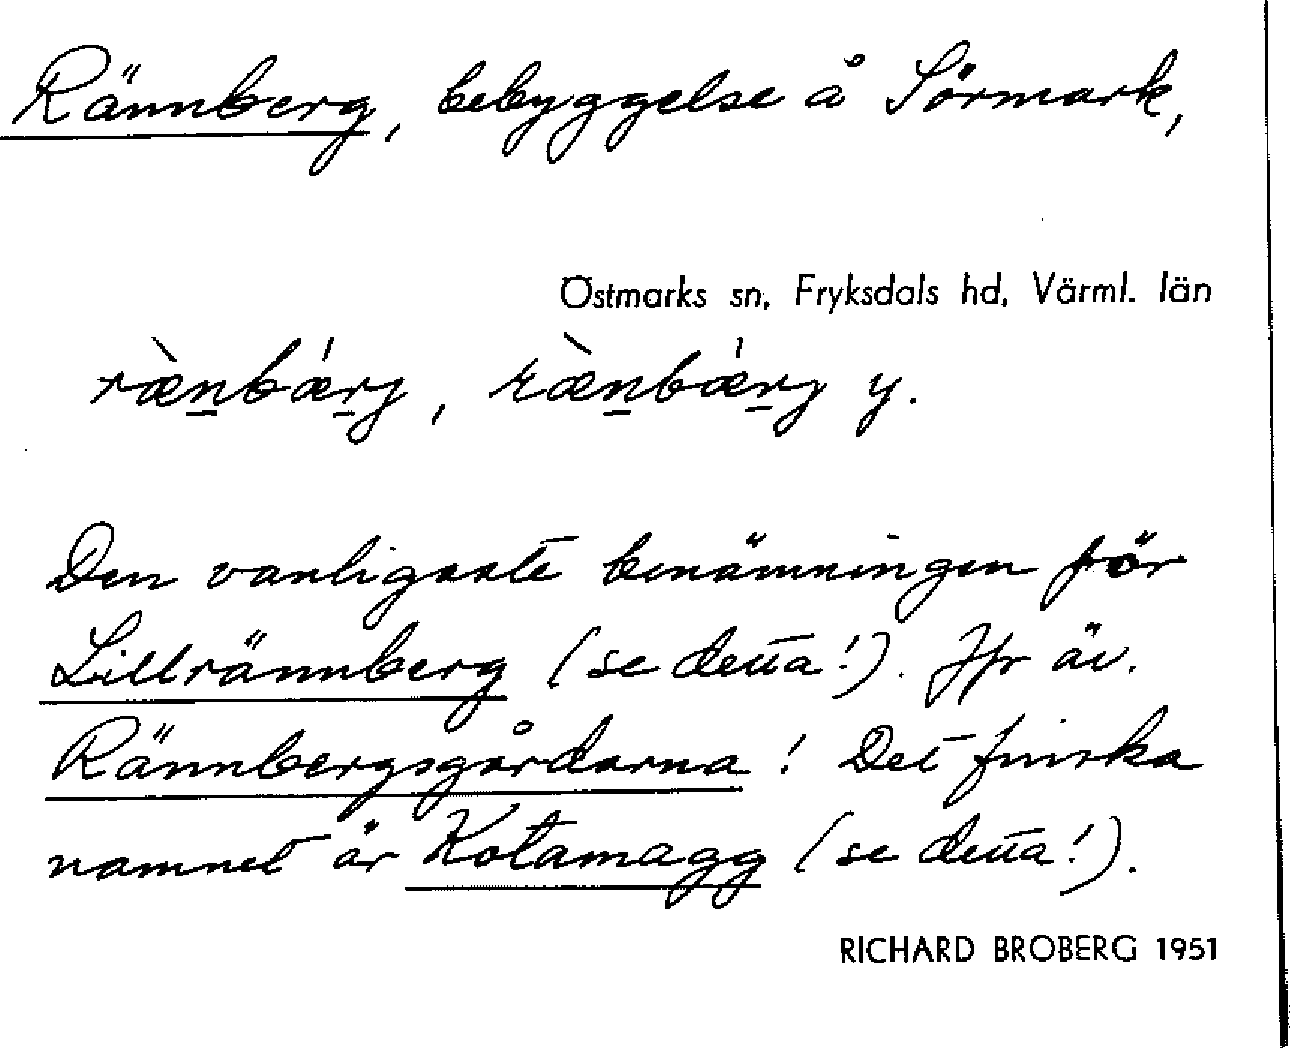 Rännberg, bebyggelse å Sörmark,
Östmarks sn, Fryksdals hd, Värml. län
ræ̀n̠bǽr̠j, ræ̀n̠bǽr̠j y.
Den vanligaste benämningen för
Lillrännberg (se detta!). Jfr äv.
Rännbergsgårdarna! Det finska
namnet är Kotamagg (se detta!).
RICHARD BROBERG 1951